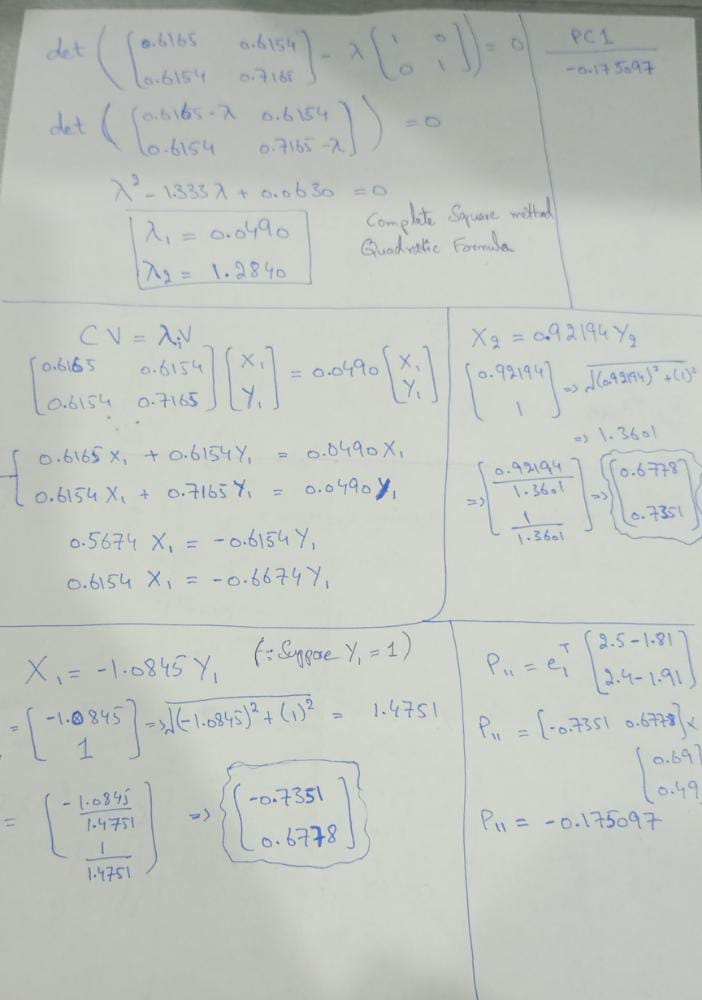 det ( [0.6165 0.6154
0.6154 0.7165] - λ [1 0
0 1] ) = 0
det ( [0.6165-λ 0.6154
0.6154 0.7165-λ] ) = 0
λ² - 1.333λ + 0.0630 = 0
λ₁ = 0.0490
λ₂ = 1.2840
Complete Square method
Quadratic Formula
PC1
-0.175097
CV = λᵢV
[0.6165 0.6154
0.6154 0.7165] [X₁
Y₁] = 0.0490 [X₁
Y₁]
0.6165 X₁ + 0.6154Y₁ = 0.0490X₁
0.6154 X₁ + 0.7165Y₁ = 0.0490Y₁
0.5674 X₁ = -0.6154Y₁
0.6154 X₁ = -0.6674Y₁
X₂ = 0.92194Y₂
[0.92194
1] => √(0.92194)² + (1)²
=> 1.3601
=> [0.92194/1.3601
1/1.3601] => [0.6778
0.7351]
X₁ = -1.0845Y₁ (∵ Suppose Y₁ = 1)
= [-1.0845
1] => √(-1.0845)² + (1)² = 1.4751
= [-1.0845/1.4751
1/1.4751] => [-0.7351
0.6778]
P₁₁ = e₁ᵀ [2.5-1.81
2.4-1.91]
P₁₁ = [-0.7351 0.6778] ×
[0.69
0.49
P₁₁ = -0.175097